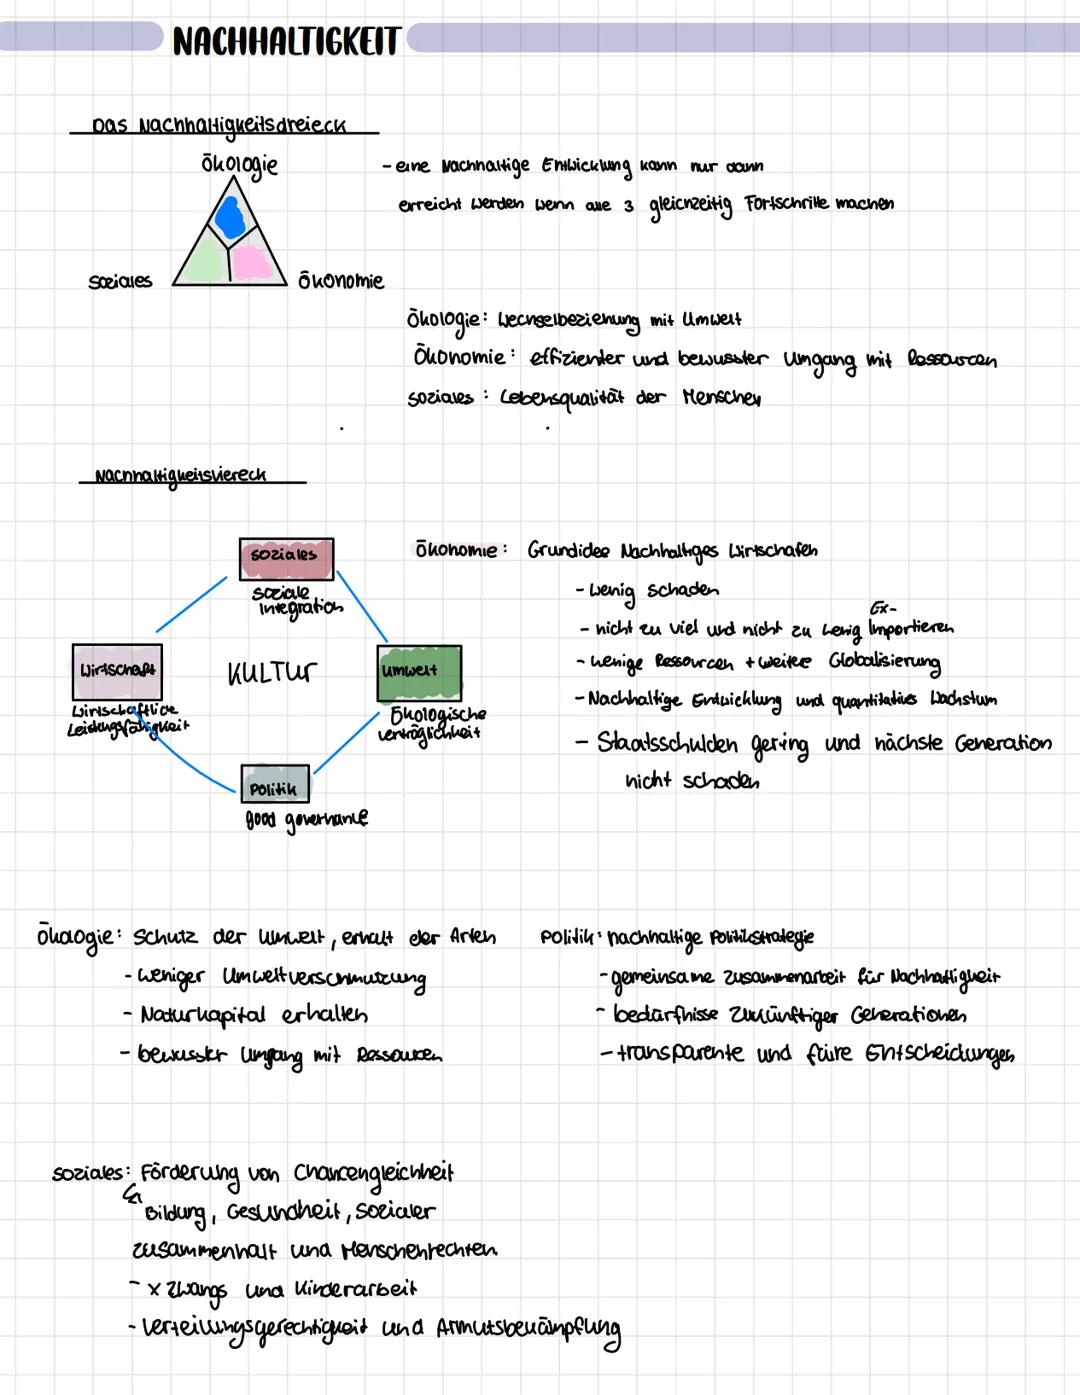 NACHHALTIGKEIT
Das Nachhaltigkeitsdreieck
Ökologie
soziales
Ökonomie
- eine Nachhaltige Entwicklung kann nur dann
erreicht werden wenn alle 3 gleichzeitig Fortschritte machen
Ökologie: Wechselbeziehung mit Umwelt
Ökonomie: effizienter und bewusster Umgang mit Ressourcen
soziales: Lebensqualität der Menschen
Nachhaltigkeitsviereck
soziales
soziale
Integration
Wirtschaft
KULTUR
Umwelt
wirtschaftliche
Leistungsfähigkeit
Ökologische
verträglichkeit
Politik
good governance
Ökonomie: Grundidee Nachhaltiges Wirtschafen
- wenig schaden
Ex-
- nicht zu viel und nicht zu wenig Importieren
- wenige Ressourcen + weitere Globalisierung
- Nachhaltige Entwicklung und quantitatives Wachstum
- Staatsschulden gering und nächste Generation
nicht schaden
Ökologie: Schutz der Umwelt, erhalt der Arten
- weniger Umweltverschmutzung
- Naturkapital erhalten
- bewusster Umgang mit Ressourcen
Politik: nachhaltige Politikstrategie
- gemeinsame zusammenarbeit für Nachhaltigkeit
- bedürfnisse Zukünftiger Generationen
- transparente und faire Entscheidungen
soziales: Förderung von Chancengleichheit
Bildung, Gesundheit, sozialer
zusammenhalt und Menschenrechten
- x Zwangs und Kinderarbeit
- Verteilungsgerechtigkeit und Armutsbekämpfung